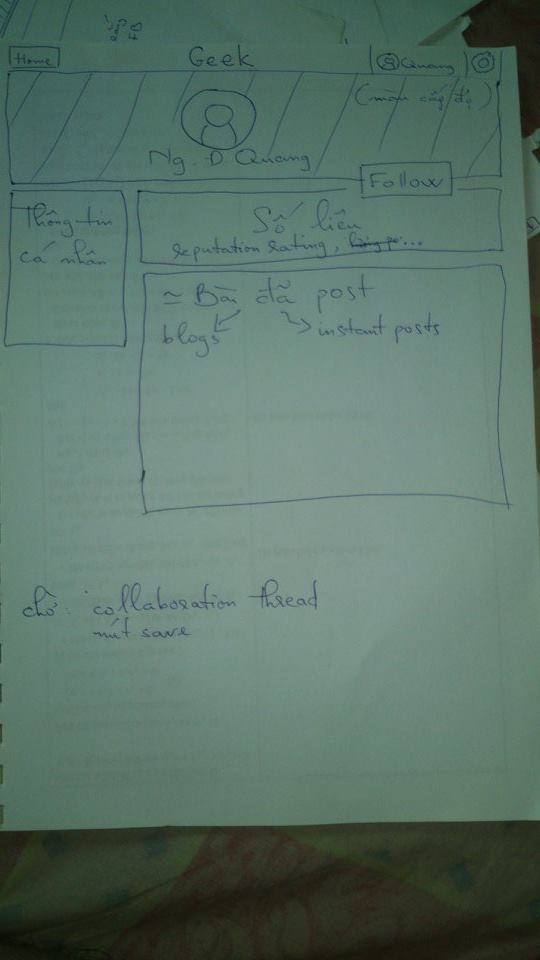 Home
Geek
Quang
(màu cấp độ)
Ng. D. Quang
Follow
Thông tin
cá nhân
Số liệu
reputation rating,
≃ Bài đã post
blogs
instant posts
chờ: collaboration thread
nút save